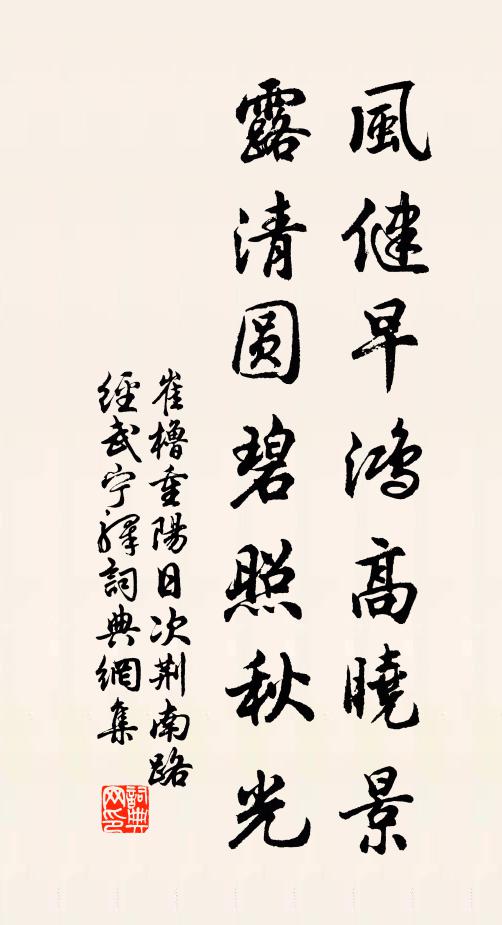 風健早鴻高曉景
露清圓碧照秋光
崔櫓重陽日次荆南路
經武宁驛詞典網集
詞典
网印